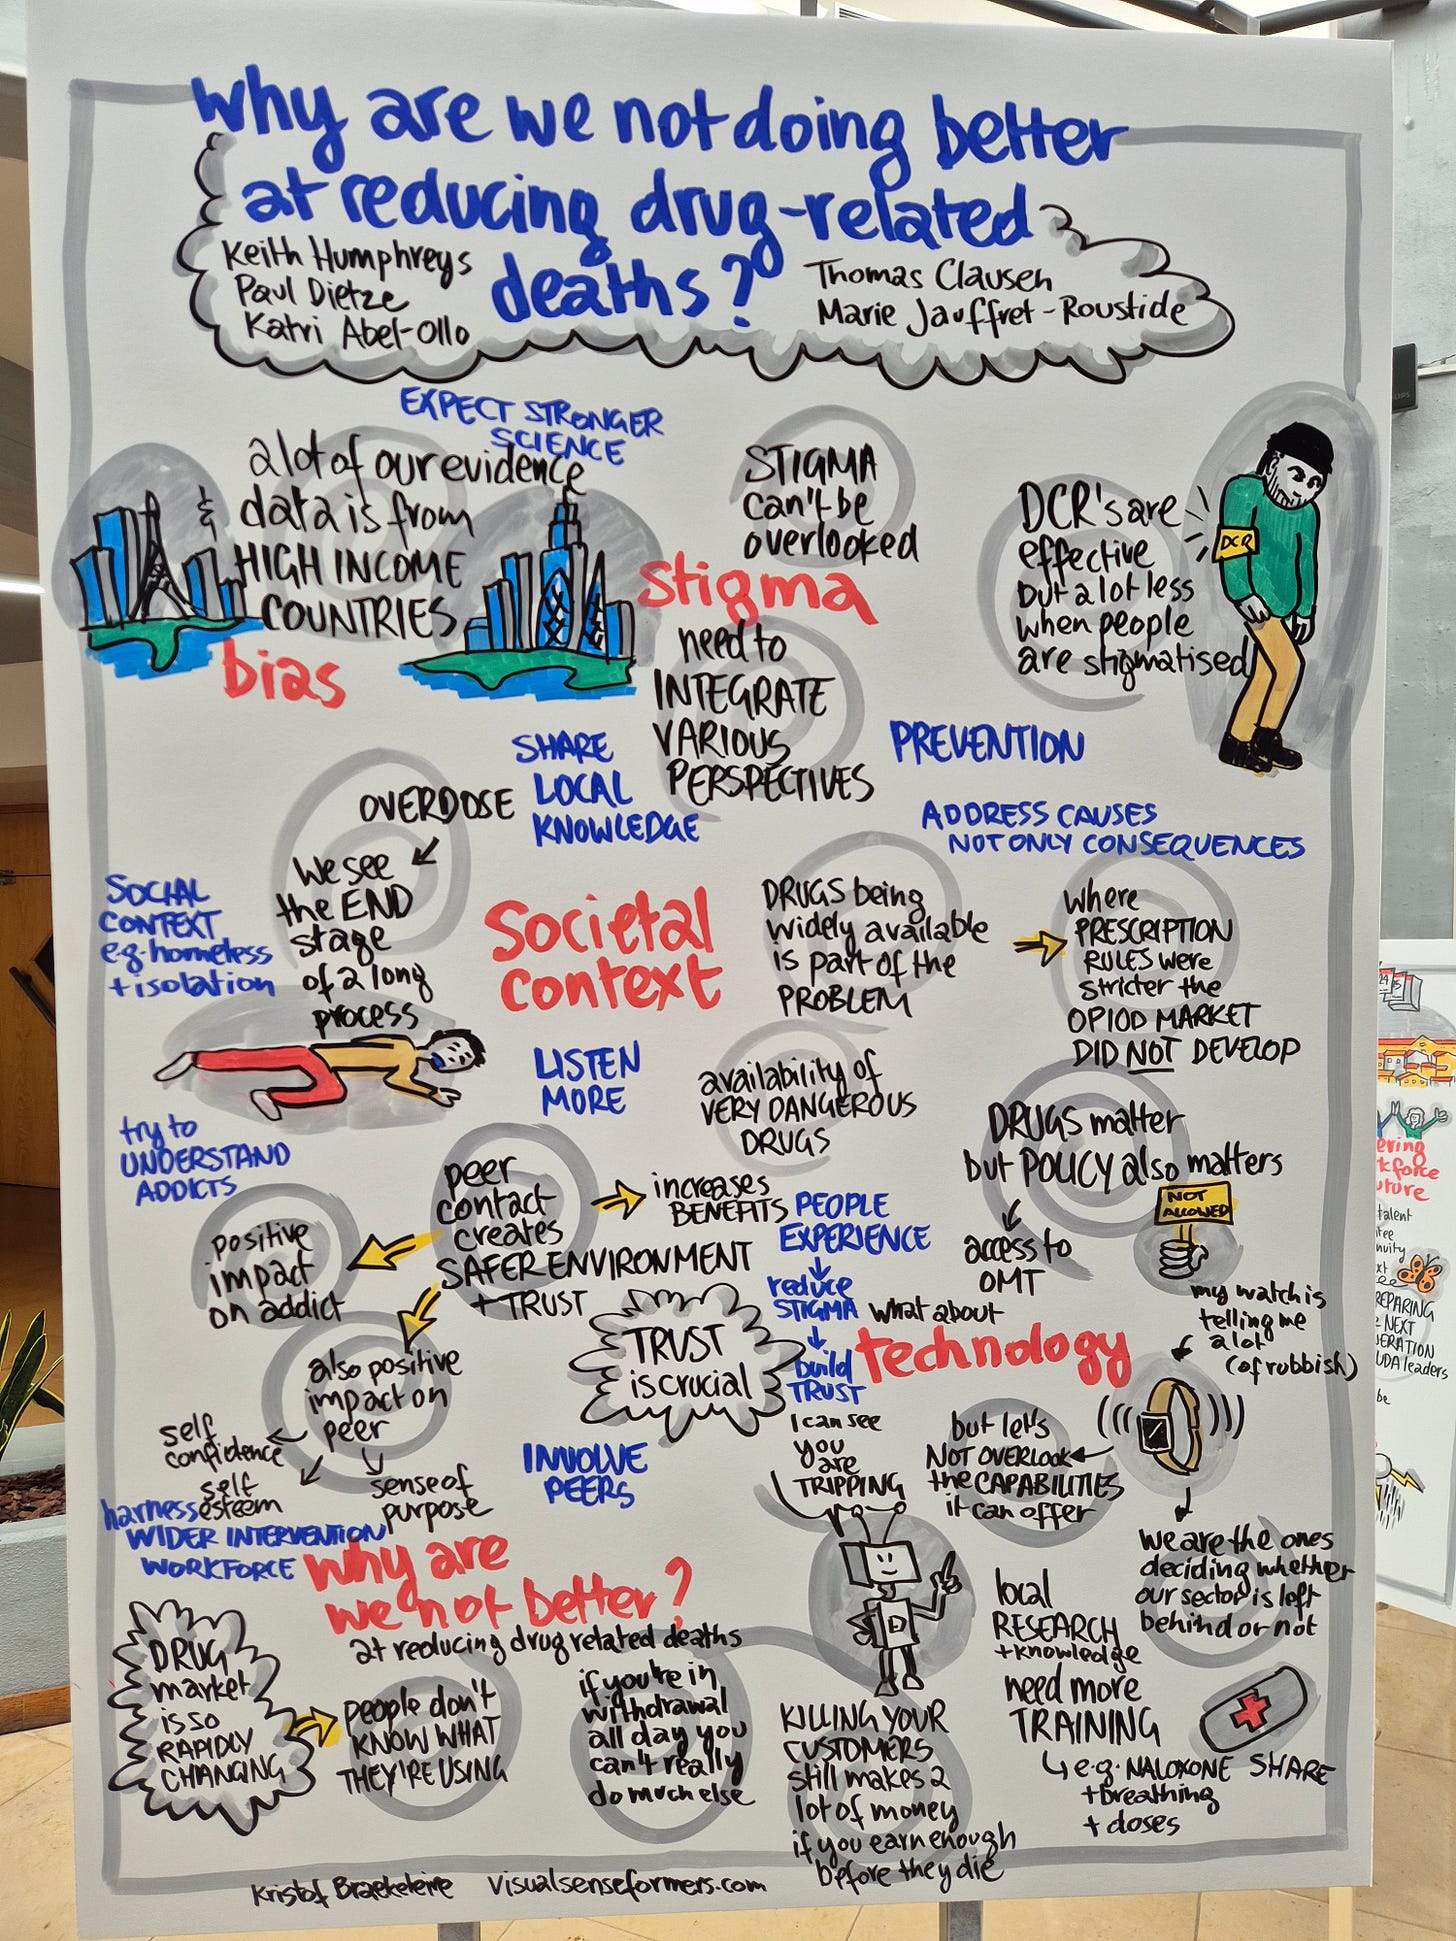 why are we not doing better
at reducing drug-related
deaths?
Keith Humphreys
Paul Dietze
Katri Abel-Ollo
Thomas Clausen
Marie Jauffret-Roustide
EXPECT STRONGER
SCIENCE
a lot of our evidence
data is from
HIGH INCOME
COUNTRIES
bias
STIGMA
can't be
overlooked
stigma
need to
INTEGRATE
VARIOUS
PERSPECTIVES
DCR's are
effective
but a lot less
when people
are stigmatised
DCR
SHARE
LOCAL
KNOWLEDGE
PREVENTION
ADDRESS CAUSES
NOT ONLY CONSEQUENCES
OVERDOSE
We see
the END
stage
of a long
process
SOCIAL
CONTEXT
e.g. homeless
+ isolation
Societal
context
DRUGS being
widely available
is part of the
PROBLEM
where
PRESCRIPTION
RULES were
stricter the
OPIOD MARKET
DID NOT DEVELOP
LISTEN
MORE
availability of
VERY DANGEROUS
DRUGS
try to
UNDERSTAND
ADDICTS
DRUGS matter
but POLICY also matters
access to
OMT
NOT
ALLOWED
peer
contact
creates
SAFER ENVIRONMENT
+ TRUST
increases
BENEFITS
positive
impact
on addict
also positive
impact on
peer
self
confidence
self
esteem
sense of
purpose
TRUST
is crucial
PEOPLE
EXPERIENCE
reduce
STIGMA
build
TRUST
what about
technology
my watch is
telling me
a lot
(of rubbish)
I can see
you
are
TRIPPING
but let's
NOT OVERLOOK
the CAPABILITIES
it can offer
we are the ones
deciding whether
our sector is left
behind or not
INVOLVE
PEERS
harness
WIDER INTERVENTION
WORKFORCE
why are
we not better?
at reducing drug related deaths
DRUG
market
is so
RAPIDLY
CHANGING
people don't
KNOW WHAT
THEY'RE USING
if you're in
withdrawal
all day you
can't really
do much else
D
KILLING YOUR
CUSTOMERS
still makes a
lot of money
if you earn enough
before they die
local
RESEARCH
+ knowledge
need more
TRAINING
e.g. NALOXONE SHARE
+ breathing
+ doses
Kristof Braekeleire visualsenseformers.com